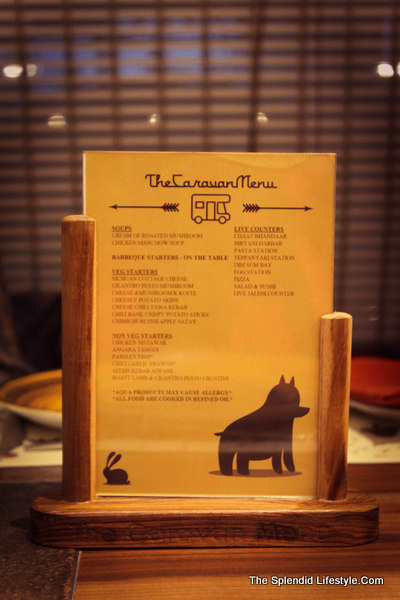 The Caravan Menu
SOUPS
CREAM OF ROASTED MUSHROOM
CHICKEN MANCHOW SOUP
BARBEQUE STARTERS - ON THE TABLE
VEG STARTERS
SICHUAN COTTAGE CHEESE
CILANTRO PESTO MUSHROOM
CHEESE &MUSHROOM K KOFTE
CHEESEY POTATO SKINS
CHEESE CHILI TAWA KEBAB
CHILI BASIL CRISPY POTATO STICKS
CHIMICHURI PINEAPPLE SATAY
NON VEG STARTERS
CHICKEN SISTAWAK
ANGARA TANGDI
PARSLEY FISH*
CHILI GARLIC PRAWNS*
SEEKH KEBAB
ROAST LAMB & CILANTRO PESTO CROSTINI
*AQUA PRODUCTS MAY CAUSE ALLERGY*
*ALL FOOD ARE COOKED IN REFINED OIL*
LIVE COUNTERS
CHAAT BHANDAAR
BIRYANI DARBAR
PASTA STATION
TEPPANYAKI STATION
DIM SUM BAY
EGG STATION
PIZZA
SALAD & SUSHI
LIVE JALEBI COUNTER
The Splendid Lifestyle.Com